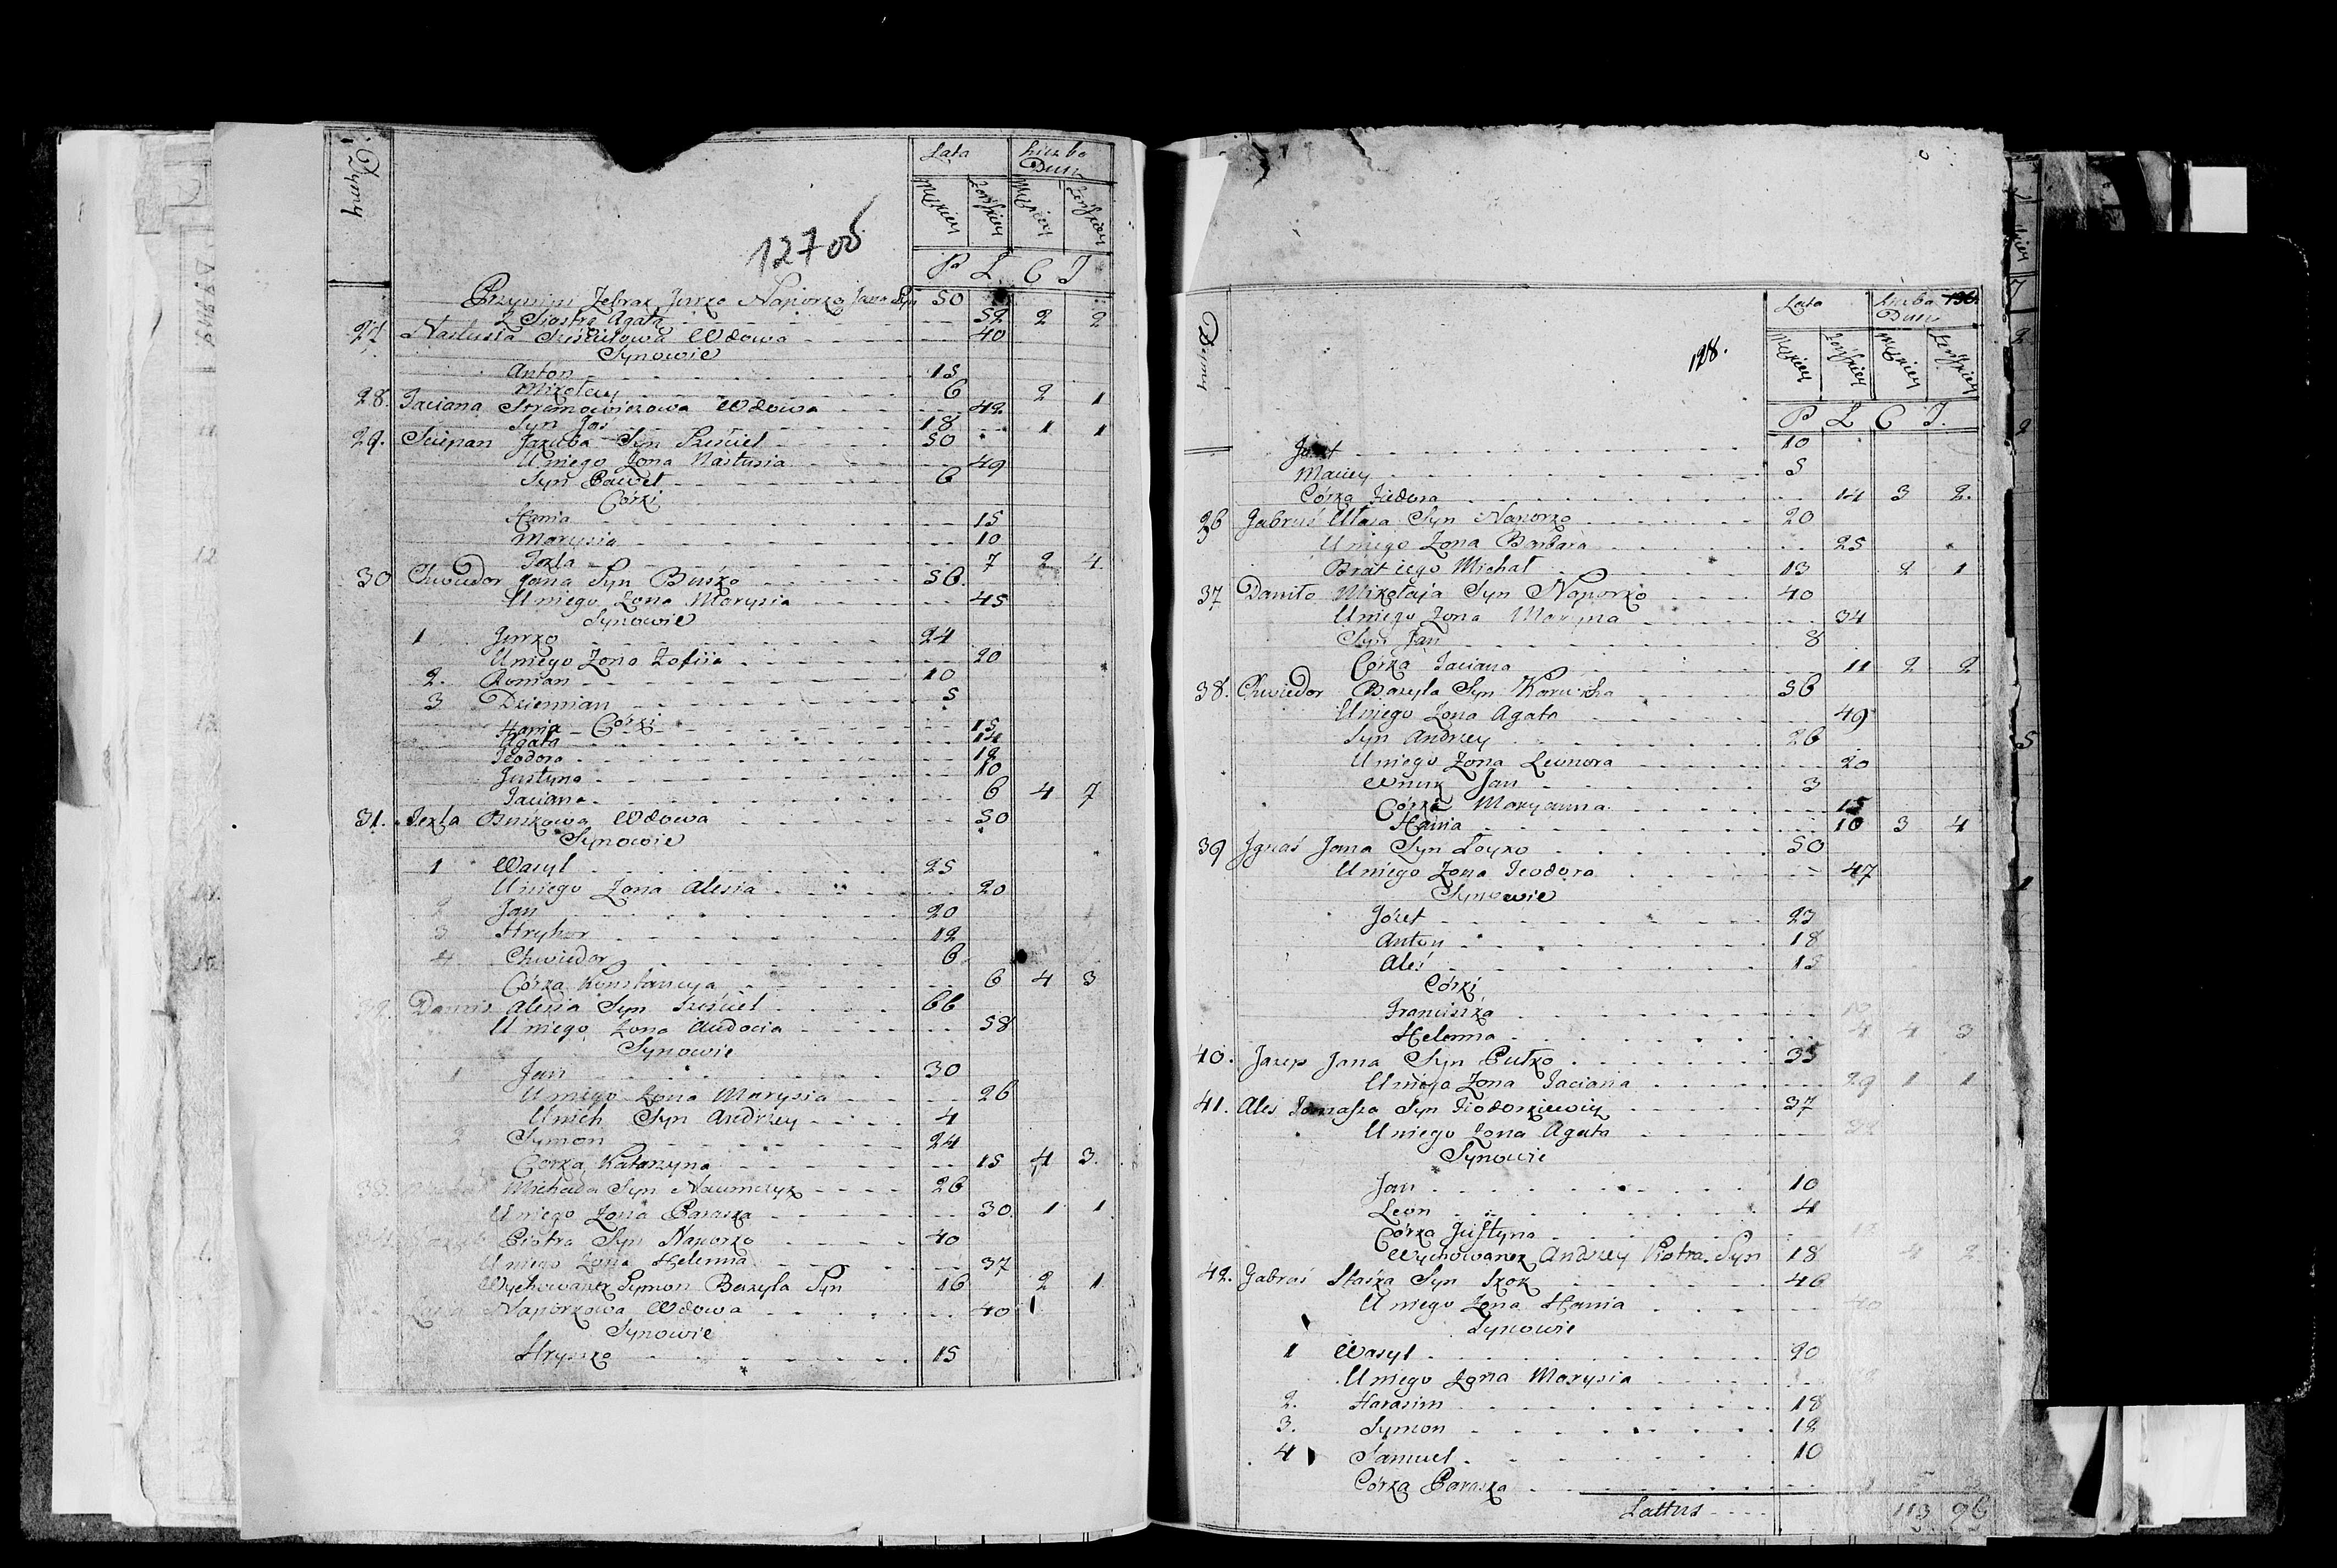 Dymy
Lata
Liczba Dusz
Męzkiey Żeńskiey Męzkiey Żeńskiey
P L C T
127 об
Przy nim Żebrak Jurko Naporko Jana Syn 50
Z Siostrą Agatą 52 2 2
27. Nastusia Wdowa 40
Synowie
Anton 15
Mikołay 6 2 1
28. Taciana Wdowa 42
Syn Jas 18 1 1
29. Sciepan Jakuba Syn 50
U niego Żona Nastusia 49
Syn Paweł 6
Córki
Hania 15
Marysia 10
Tekla 7 2 4
30 Chwiedor Jana Syn Buśko 56
U niego Żona Marysia 45
Synowie
1 Jurko 24
U niego Żona Zofiia 20
2. Roman 10
3 Dziemian 5
Hania Córki 15
Agata 14
Teodora 12
Justyna 10
Taciana 6 4 7
31. Tekla Buśkowa Wdowa 50
Synowie
1 Wasyl 25
U niego Żona Alesia 20
2 Jan 20
3 Hryhor 12
4 Chwiedor 6
Córka Konstancya 6 4 3
32. Danis Alesia Syn 66
U niego Żona Audocia 58
Synowie
1 Jan 30
U niego Żona Marysia 26
U nich Syn Andrzey 4
2 Symon 24
Córka Katarzyna 15 4 3
33. Michała Syn Naumczyk 26
U niego Żona Paraska 30 1 1
Piotra Syn Naporko 40
U niego Żona Helenna 37
Wychowanek Symon Bazyla Syn 16 2 1
Naporkowa Wdowa 40
Synowie
Hryszko 15
128.
136.
Dymy
Lata
Liczba Dusz
Męzkiey Żeńskiey Męzkiey Żeńskiey
P L C T.
Józef 10
Maciey 5
Córka Fiedora 14 3 2.
36 Gabruś Ułasa Syn Naporko 20
U niego Żona Barbara 25
Brat iego Michał 13 2 1
37 Daniło Mikołaja Syn Naporko 40
U niego Żona Maryna 34
Syn Jan 8
Córka Taciana 11 2 2
38. Chwiedor Bazyla Syn 56
U niego Żona Agata 49
Syn Andrzey 26
U niego Żona Leonora 20
Wnuk Jan 3
Córki Maryanna 15
Hania 10 3 4
39 Jgnaś Jana Syn Łoyko 50
U niego Żona Teodora 47
Synowie
Józef 23
Anton 18
Aleś 15
Córki
Franciszka 10
Helenna 4 4 3
40. Jazep Jana Syn Putko 35
U niego Żona Taciana 29 1 1
41. Ales Tomasza Syn Fiodorkiewicz 37
U niego Żona Agata
Synowie
Jan 10
Leon 4
Córka Justyna
Wychowanek Andrzey Piotra Syn 18 4 2
42. Gabruś Staśka Syn Skok 46
U niego Żona Hania 40
Synowie
1 Wasyl 20
U niego Żona Marysia
2. Harasim 18
3. Symon 12
4 Samuel 10
Córka Paraska
Lattus 113 96